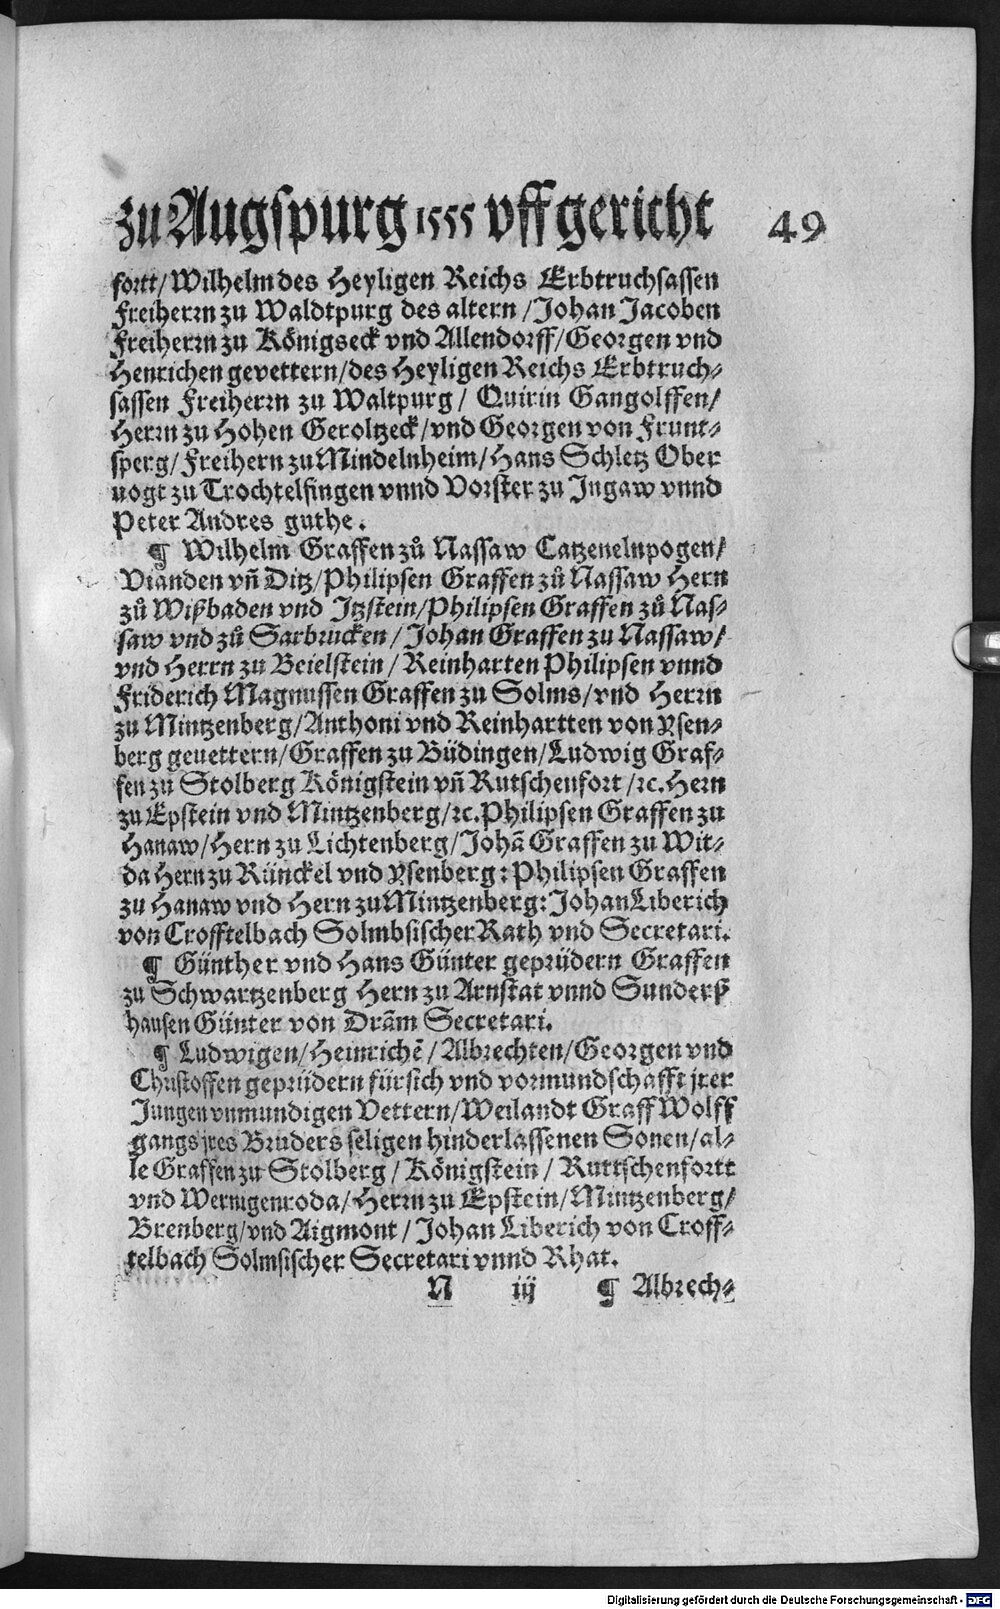 zu Augspurg 1555 vffgericht 49
fortt/Wilhelm des Heyligen Reichs Erbtruchsassen
Freiherrn zu Waldtpurg des altern/Johan Jacoben
Freiherrn zu Königseck vnd Allendorff/Georgen vnd
Henrichen gevettern/des Heyligen Reichs Erbtruch-
sassen Freiherrn zu Waltpurg/ Quirin Gangolffen/
Herrn zu Hohen Geroltzeck/vnd Georgen von Frunt-
sperg/Freihern zu Mindelnheim/Hans Schletz Ober
uogt zu Trochtelfingen vnnd Vorster zu Jngaw vnnd
Peter Andres guthe.
¶ Wilhelm Graffen zů Nassaw Catzenelnpogen/
Vianden vñ Ditz/Philipsen Graffen zů Nassaw Hern
zů Wißbaden vnd Jtzstein/Philipsen Graffen zů Nas-
saw vnd zů Sarbrucken/Johan Graffen zu Nassaw/
vnd Herrn zu Beielstein/Reinharten Philipsen vnnd
Friderich Magnussen Graffen zu Solms/vnd Herrn
zu Mintzenberg/Anthoni vnd Reinhartten von Ysen-
berg geuettern/Graffen zu Büdingen/Ludwig Graf-
fen zu Stolberg Königstein vñ Rutschenfort/ꝛc. Hern
zu Epstein vnd Mintzenberg/ꝛc. Philipsen Graffen zu
Hanaw/Hern zu Lichtenberg/Johã Graffen zu Wit-
da Hern zu Rünckel vnd Ysenberg: Philipsen Graffen
zu Hanaw vnd Hern zu Mintzenberg: Johan Liberich
von Crofftelbach Solmbsischer Rath vnd Secretari.
¶ Günther vnd Hans Günter geprüdern Graffen
zu Schwartzenberg Hern zu Arnstat vnnd Sunderß
hausen Günter von Drãm Secretari.
¶ Ludwigen/Heinrichẽ/Albrechten/Georgen vnd
Christoffen geprüdern für sich vnd vormundschafft jrer
Jungen vnmundigen Vettern/Weilandt Graff Wolff
gangs jres Bruders seligen hinderlassenen Sonen/al-
le Graffen zu Stolberg/Königstein/Ruttschenfortt
vnd Wernigenroda/Herrn zu Epstein/Mintzenberg/
Brenberg/vnd Aigmont/Johan Liberich von Croff-
telbach Solmsischer Secretari vnnd Rhat.
N iij ¶ Albrech-
Digitalisierung gefördert durch die Deutsche Forschungsgemeinschaft - DFG